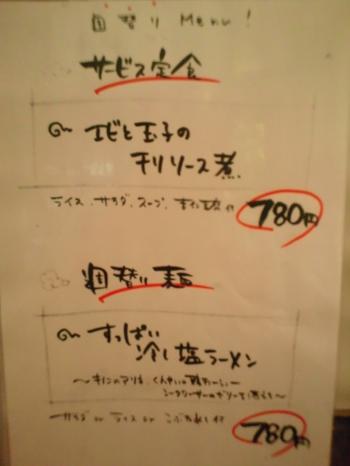 週替り Menu!
サービス定食
エビと玉子の
チリソース煮
ライス、サラダ、スープ、
780円
週替り麺
すっぱい
冷し塩ラーメン
サラダ or ライス or
780円